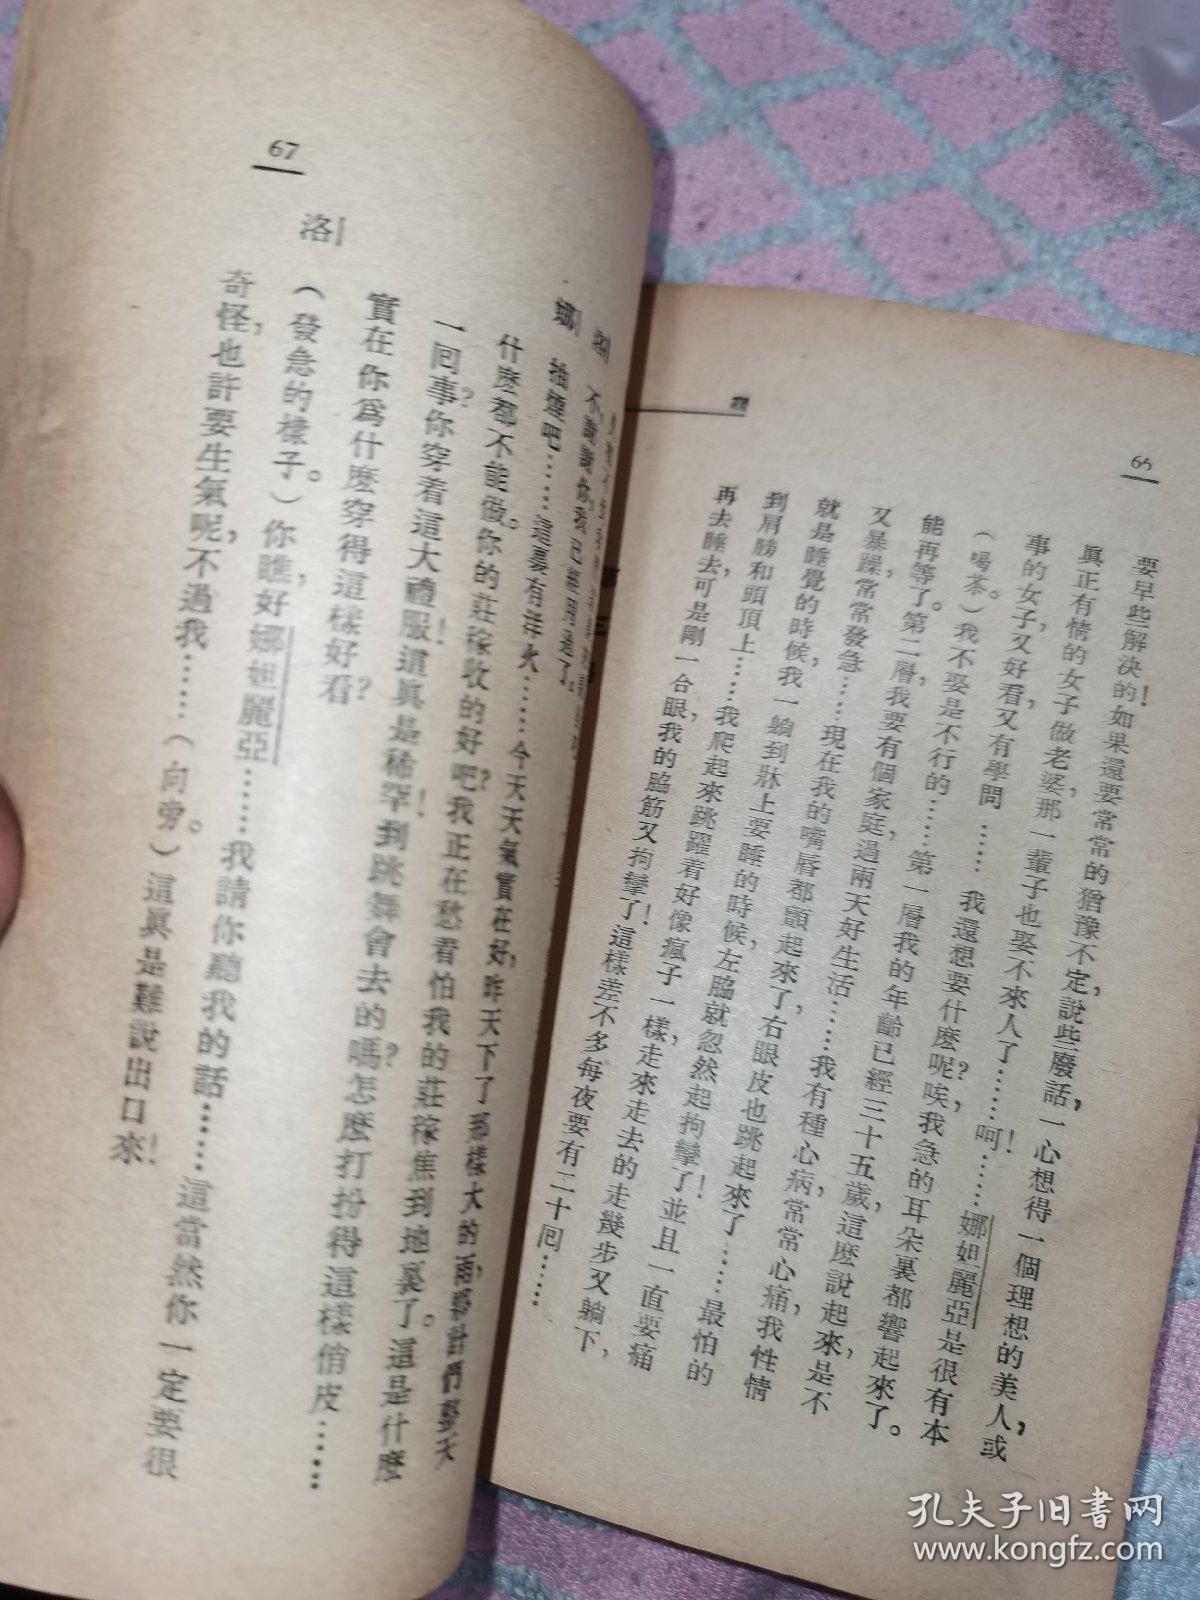 66
要早些解決的！如果還要常常的猶豫不定，說些廢話，一心想得一個理想的美人，或
眞正有情的女子做老婆，那一輩子也娶不來人了……！呵……娜妲麗亞是很有本
事的女子，又好看，又有學問……我還想要什麽呢？唉，我急的耳朵裏都響起來了。
（喝茶。）我不娶是不行的……第一層我的年齡已經三十五歲，這麽說起來，是不
能再等了。第二層我要有個家庭，過兩天好生活……我有種心病，常常心痛，我性情
又暴躁，常常發急……現在我的嘴唇都顫起來了，右眼皮也跳起來了……最怕的
就是睡覺的時候，我一躺到牀上要睡的時候，左脇就忽然起拘攣了！並且一直要痛
到肩膀和頭頂上……我爬起來跳躍着好像瘋子一樣，走來走去的走幾步又躺下，
再去睡去，可是剛一合眼，我的脇筋又拘攣了！這樣差不多每夜要有二十囘……
洛
不，謝謝你，我已經用過了。
娜
抽煙吧……這裏有洋火……今天天氣實在好，昨天下了那樣大的雨，夥計們整天
什麽都不能做。你的莊稼收的好吧？我正在愁着怕我的莊稼焦到地裏了。這是什麽
一囘事？你穿着這大禮服！這眞是稀罕！到跳舞會去的嗎？怎麽打扮得這樣俏皮……
實在你爲什麽穿得這樣好看？
67
洛
（發急的樣子。）你瞧，好娜妲麗亞……我請你聽我的話……這當然你一定要很
奇怪，也許要生氣呢，不過我……（向旁。）這眞是難說出口來！
孔夫子旧書网
www.kongfz.com